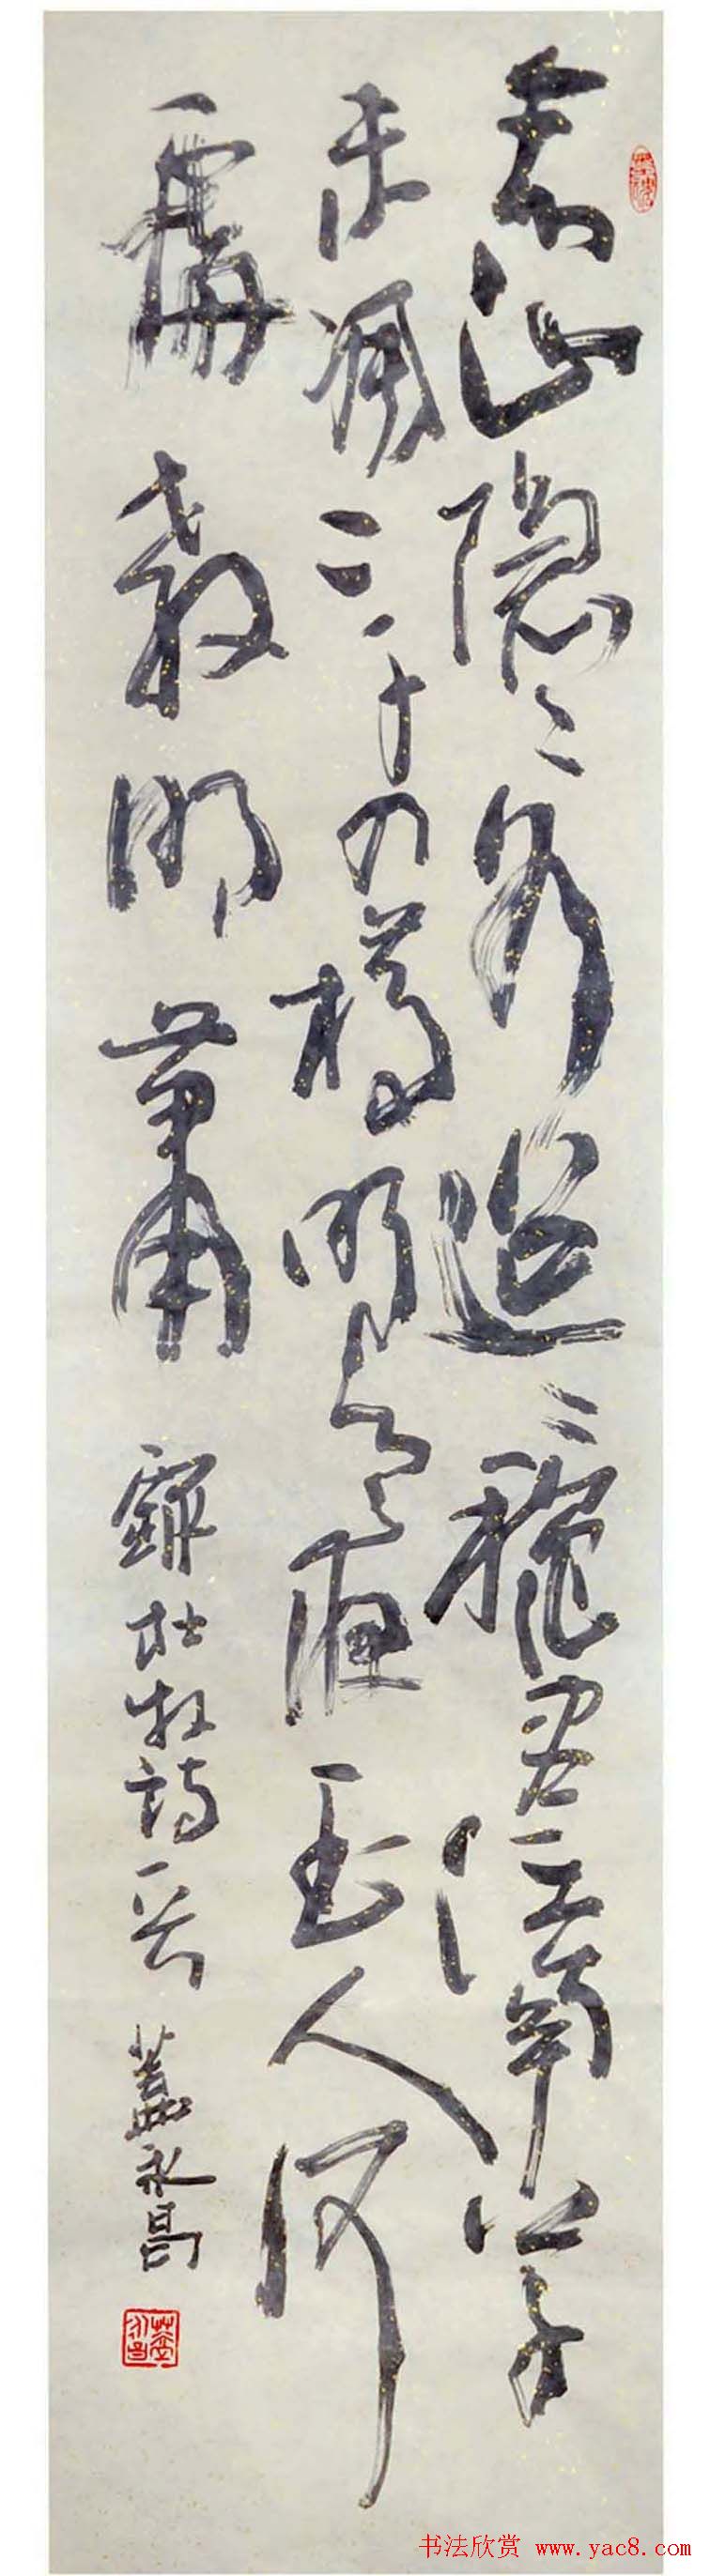 青山隐〻水迢〻秋尽江南草
未凋二十四橋明月夜玉人何
處教吹萧 錄杜牧詩一首 蓋永昌
书法欣赏 www.yac8.com